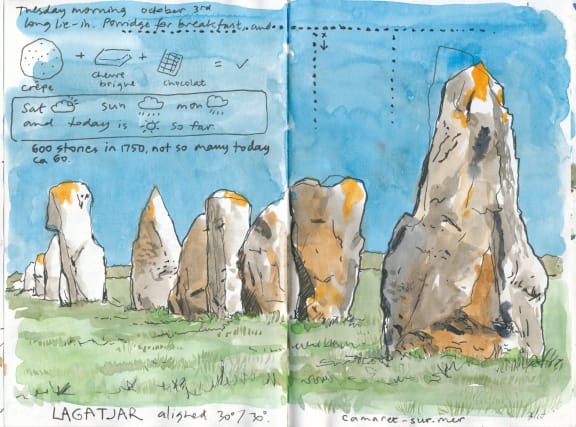 Tuesday morning october 3rd
long lie-in. Porridge for breakfast, and
+ + = ✓
crêpe chevre brique chocolat
Sat sun mon
and today is so far
600 stones in 1750, not so many today
ca 60.
LAGATJAR aligned 30°/30°.
camaret-sur-mer